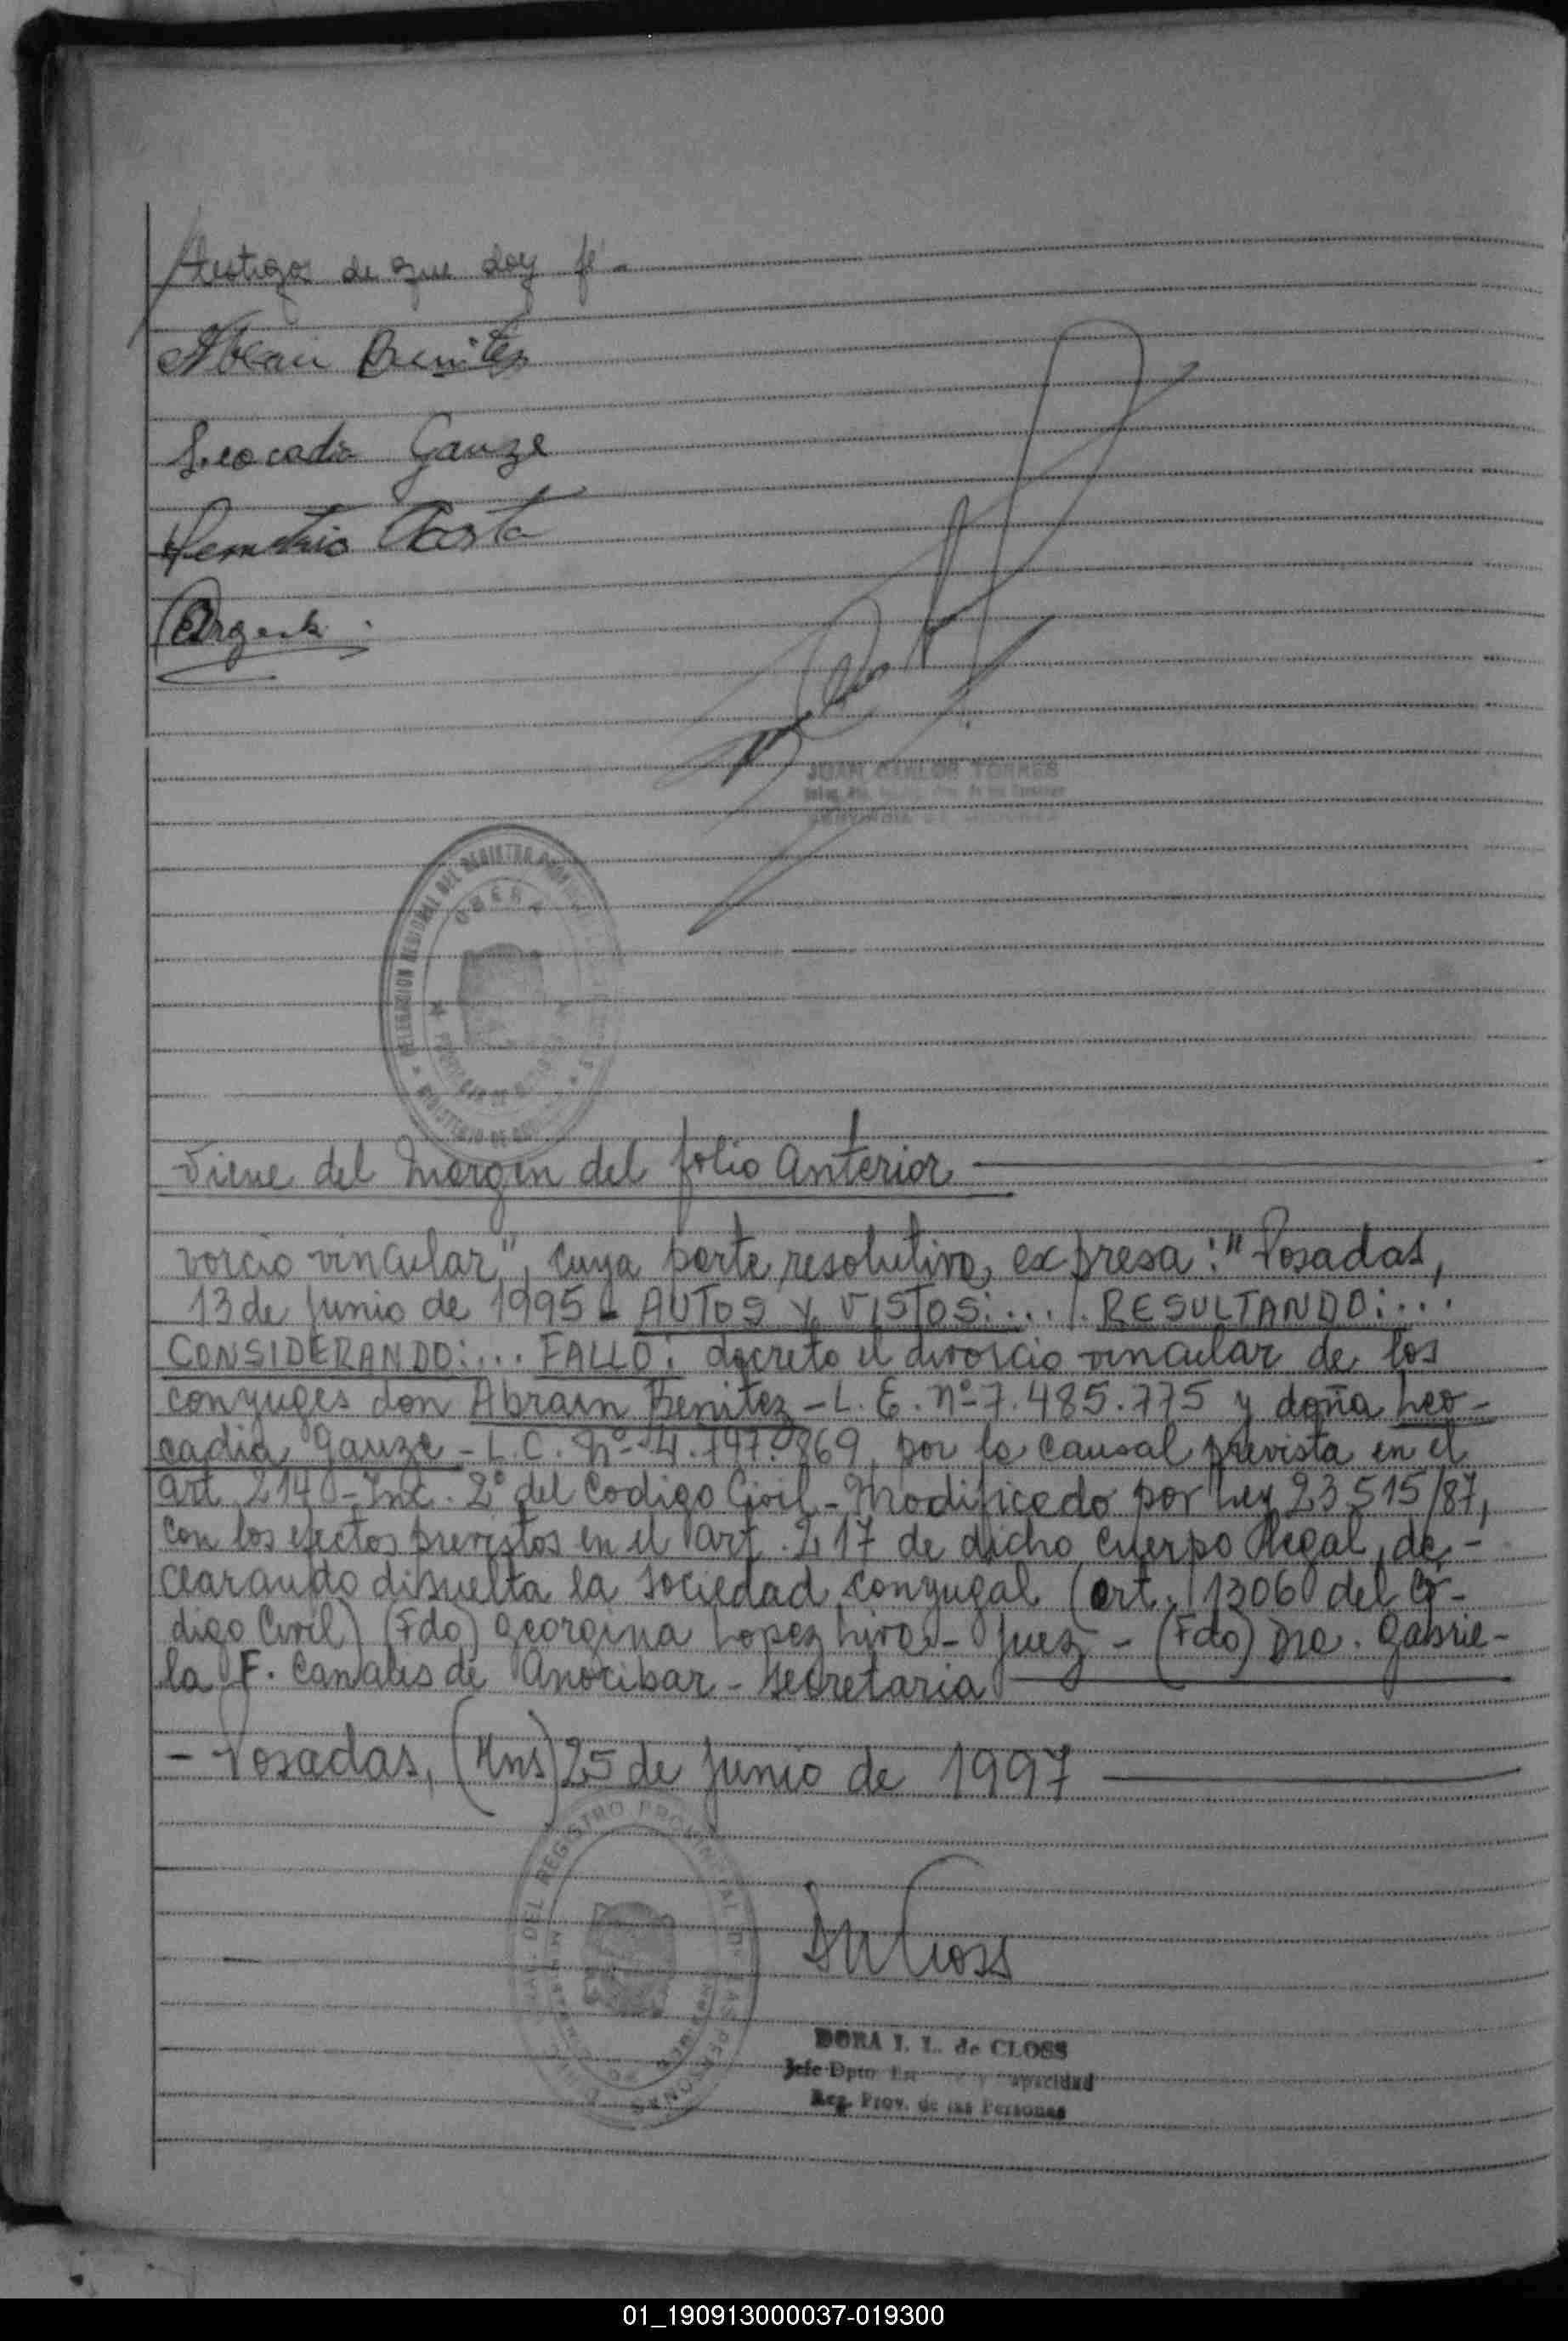 testigos de que doy fé -
Abrain Benitez
Leocadia Gauze
Demetrio Acosta
JUAN CARLOS TORRES
DELEGACION REGIONAL DEL REGISTRO PROVINCIAL
OBERA
MINISTERIO DE
Viene del Margen del folio Anterior
vorcio vincular", cuya parte resolutiva, expresa: "Posadas,
13 de Junio de 1995 - AUTOS Y VISTOS:... RESULTANDO:...
CONSIDERANDO:... FALLO: decreto el divorcio vincular de los
conyuges don Abrain Benitez - L. E. Nº 7.485.775 y doña Leo-
cadia Gauze - L.C. Nº 4.797.869, por la causal prevista en el
art. 214 - Inc. 2º del Codigo Civil - Modificado por Ley 23.515/87,
con los efectos previstos en el art. 217 de dicho cuerpo legal, de-
clarando disuelta la sociedad conyugal (art. 1306 del Có-
digo Civil) (Fdo) Georgina Lopez Liva - Juez - (Fdo) Dra. Gabrie-
la F. Canales de Anocibar - Secretaria
- Posadas, (Mns) 25 de Junio de 1997
DEL REGISTRO PROVINCIAL DE LAS PERSONAS
DORA I. L. de CLOSS
Jefe Dpto y Capacidad
Reg. Prov. de las Personas
01_190913000037-019300